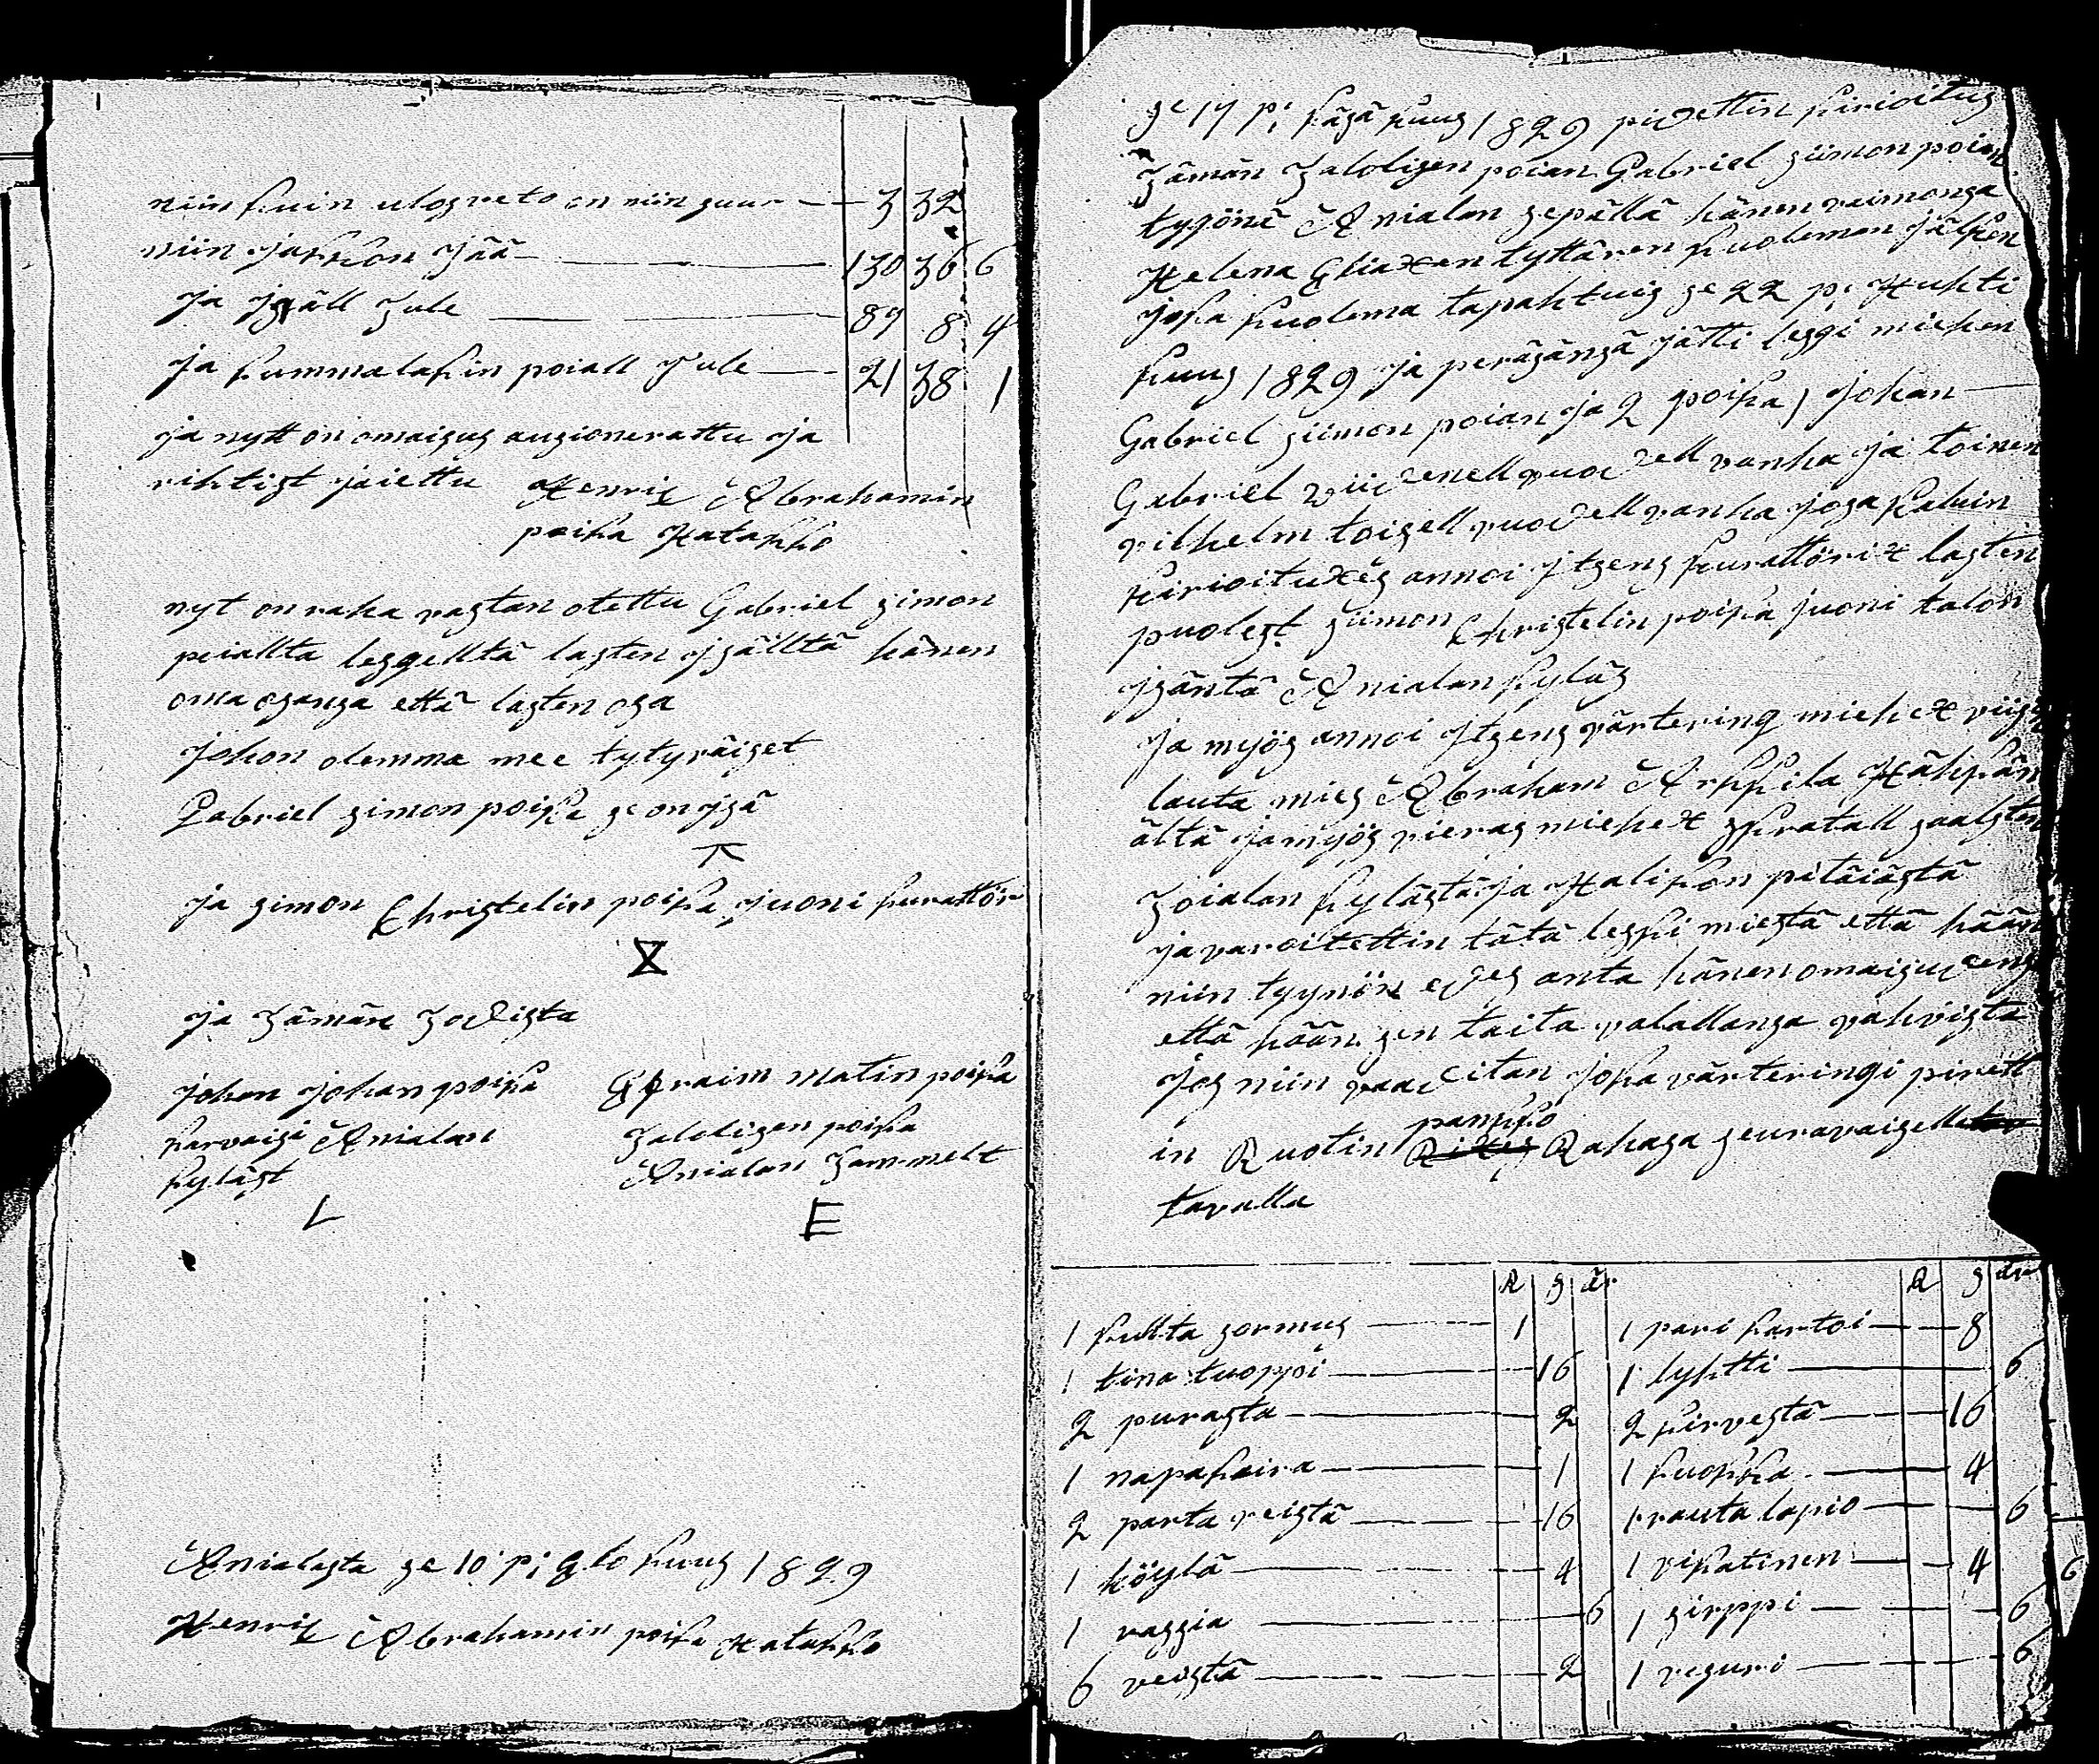 niin kuin ulosveto on niin suur — 3 32
niin jakkon jää — 130 36 6
ja jsäll tule — 87 8 4
ja kummalakin poiall tule — 21 38 1
ja nytt on omaisus ausionerattu ja
rihtist jaiettu Henrik Abrahamin
poika Katakko
nyt on raha vastan otettu Gabriel simon
poiallta leskelltä lasten jsälltä hänen
oma osansa että lasten osa
johon olemma mee tytyväiset
Gabriel simon poika se on jsä
ja simon Christelin poika juoni kurattör
X
ja tämän todista
Johan Johan poika
karvaisi Anialan
kyläst
L
Ephraim matin poika
talolisen poika
Anialan tammelt
E
Anialasta se 10 pi elo kuus 1829
Henrik Abrahamin poika Katakko
se 17 pi käsä kuus 1829 pidettin kirioitus
tämän talolisen poian Gabriel siimon poian
tyyönä Anialan sepällä hänen vaimonsa
Helena Eliaxen tyttären kuoleman jälken
joka kuolema tapahtuis se 22 pi Huhti
kuus 1829 ja peräsänsä jätti leski miehen
Gabriel siimon poian ja 2 poika 1 Johan —
Gabriel viidenell vuodell vanha ja toinen
vilhelm toisell vuodell vanha josa kaluin
kirioituxes annoi jtsens kurattörix lasten
puolest siimon Christelin poika juoni talon
jsäntä Anialan kyläs
ja myös annoi jtsens värtering miehex
lauta mies Abraham Arkkila Hähkän
ältä ja myös vieras miehex skratall saalsten
toialan kylästä ja Halikon pitäiästä
ja varoitettin tätä leski miestä että hään
niin tyynön edes anta hänen omaisudens
että hään sen taita valallansa vahvista
jos niin vaaditan joka värteringi pirett
in Ruotin pankko Rahasa seuravaisella
tavalla
R s är R s är
1 kullta sormus — 1
1 tina tuoppi — 16
2 purasta — 2
1 napakaira — 1
2 parta veistä — 16
1 höylä — 4
1 vassia — 6
6 veistä — 2
1 pari kartoi — 8
1 lyhtti — 6
2 kirvestä — 16
1 kuokka — 4
1 rauta lapio — 6
1 vikatinen — 4
1 sirppi — 6
1 vesuri — 6